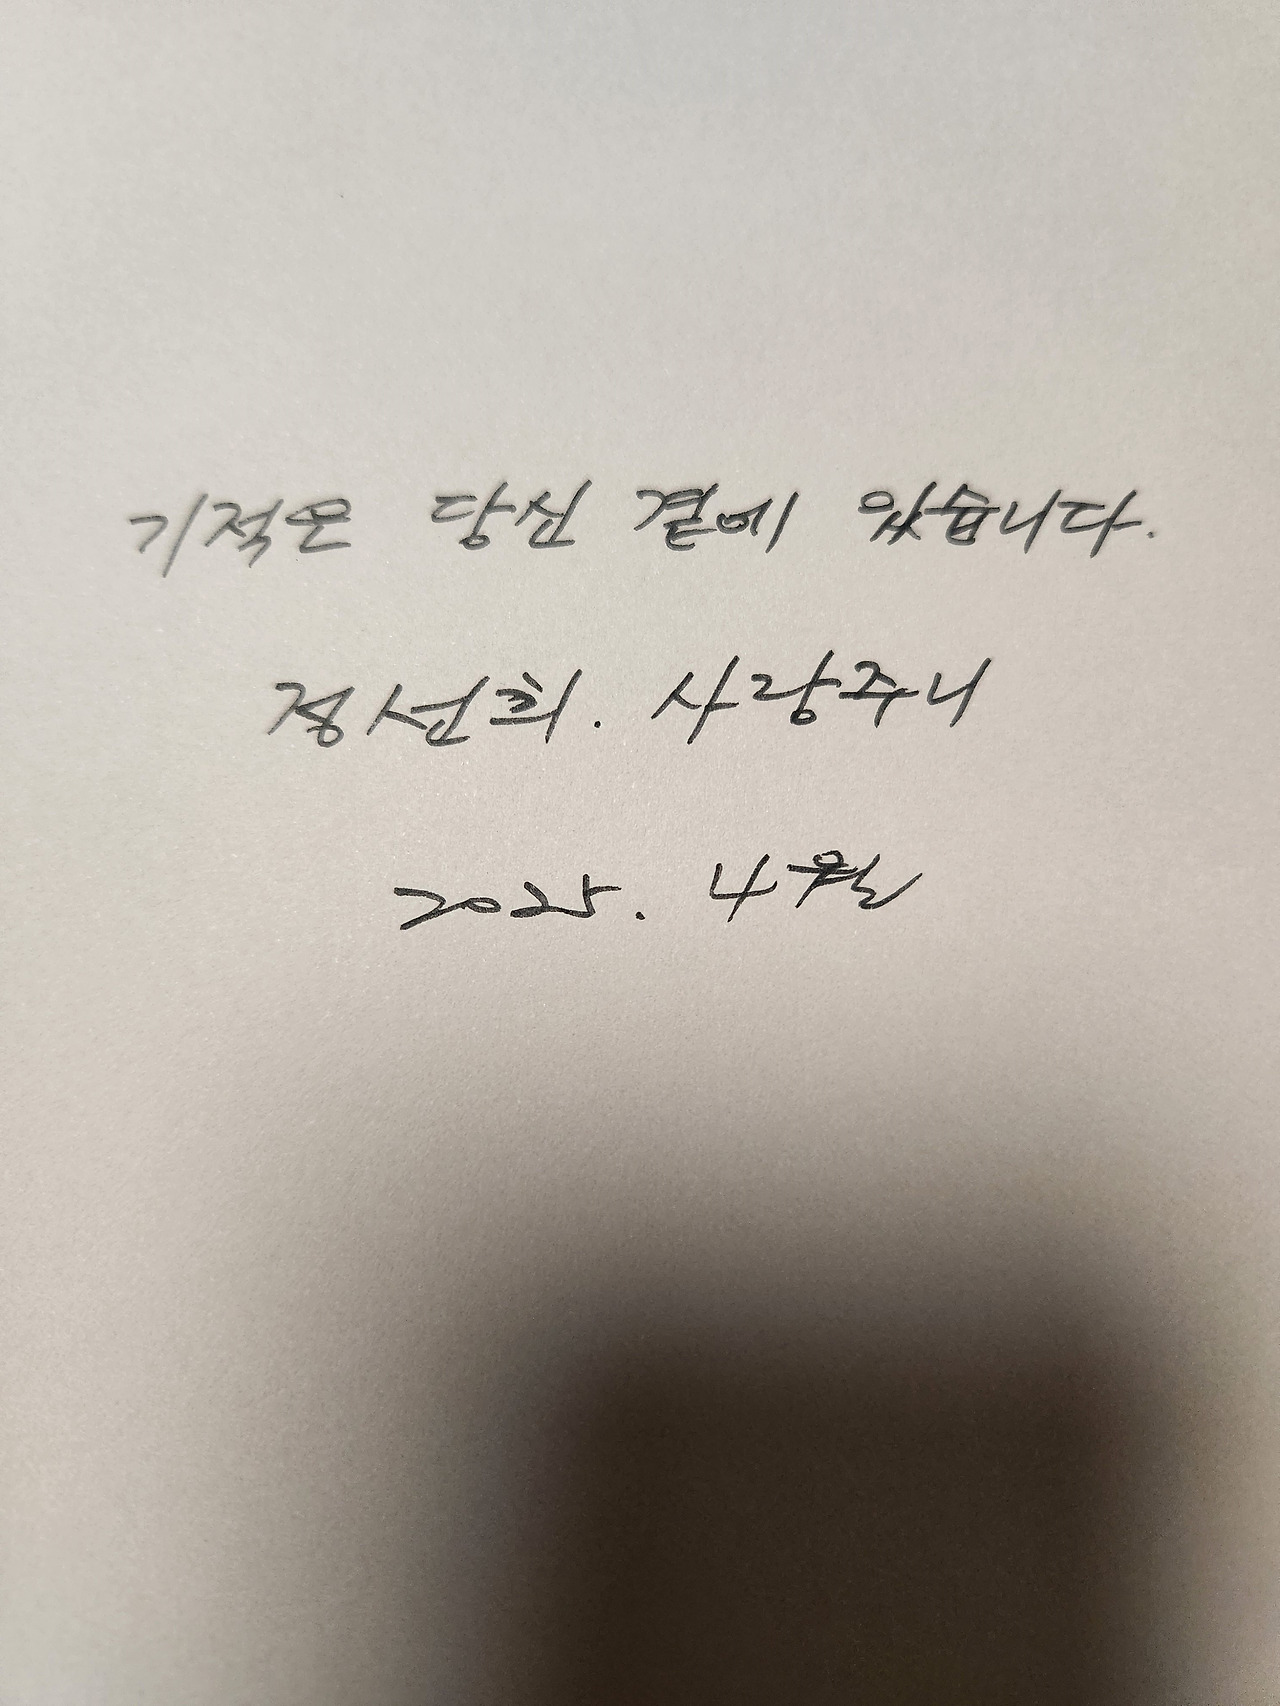 기적은 당신 곁에 있습니다.
정선희. 사랑주니
2025. 4월